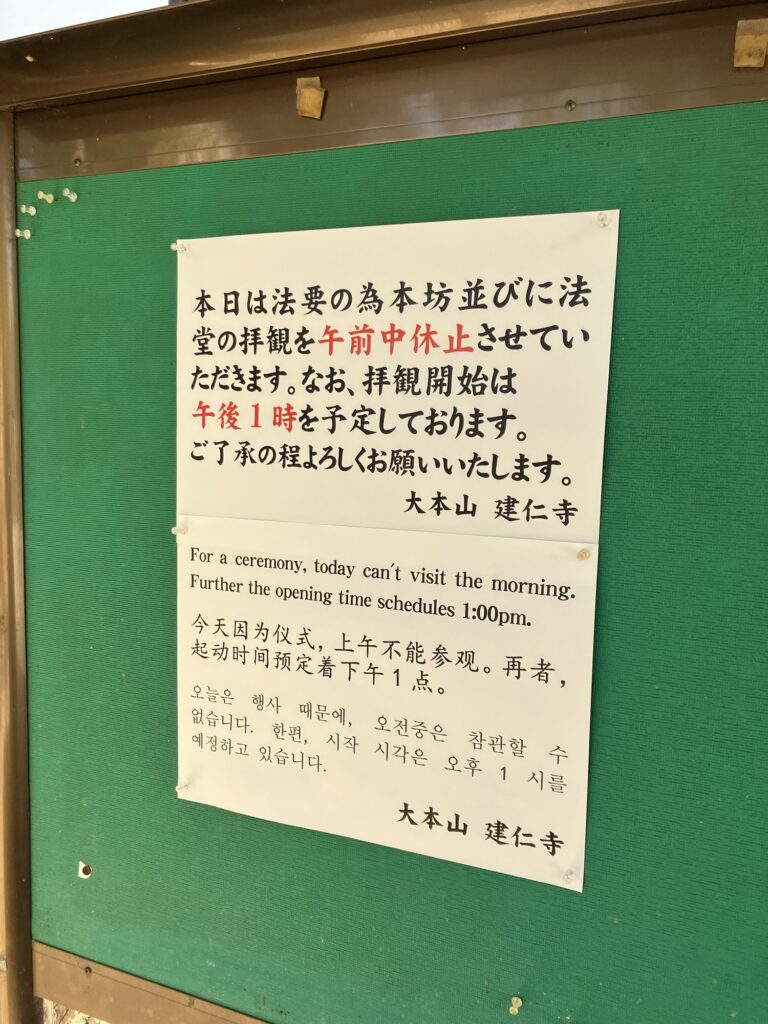 本日は法要の為本坊並びに法
堂の拝観を午前中休止させてい
ただきます。なお、拝観開始は
午後1時を予定しております。
ご了承の程よろしくお願いいたします。
大本山 建仁寺
For a ceremony, today can't visit the morning.
Further the opening time schedules 1:00pm.
今天因为仪式，上午不能参观。再者，
起动时间预定着下午1点。
오늘은 행사 때문에, 오전중은 참관할 수
없습니다. 한편, 시작 시각은 오후 1 시를
예정하고 있습니다.
大本山 建仁寺